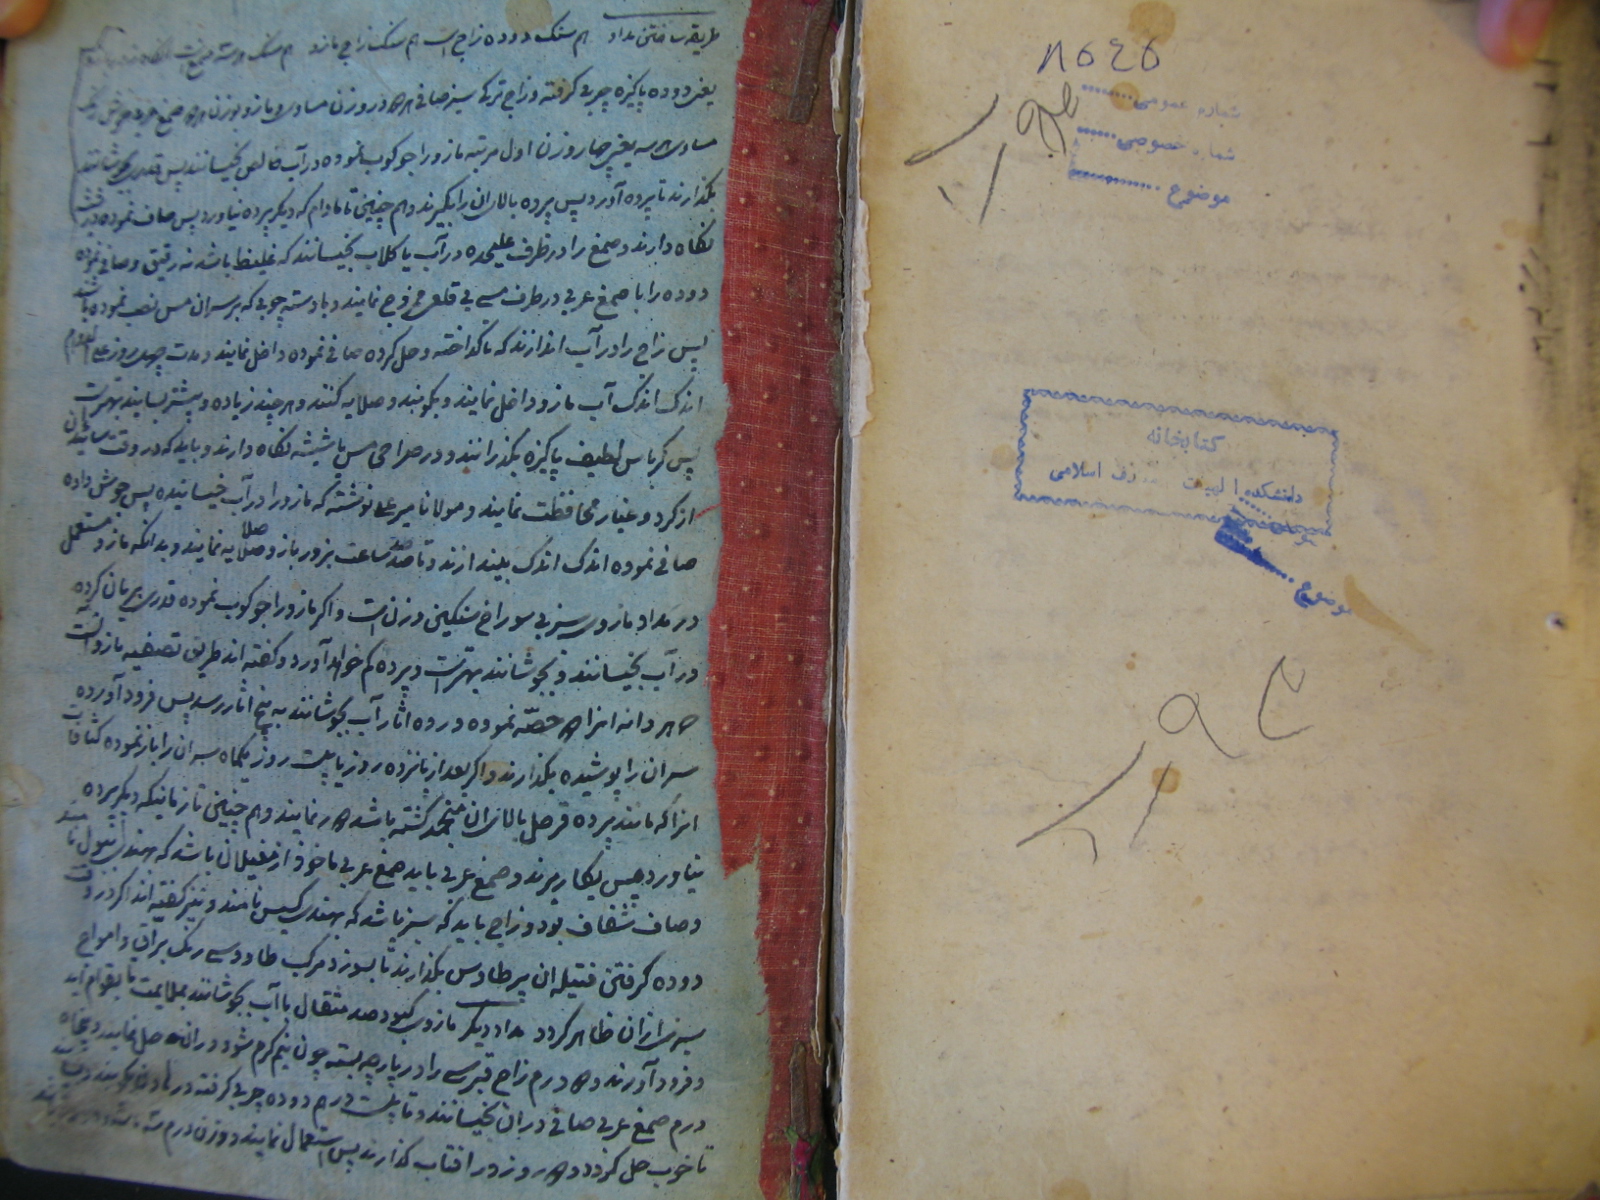 طریقه ساختن مداد هم سنک دوده زاج است هم سنک زاج مازو هم سنک هر سه صمغ است
یعنی دوده پاکیزه چربی کرفته و زاج ترکی سبز صافی هر دو در وزن مساوی و مازو بوزن هر دو صمغ عربی
مساوی هر سه یعنی چهار وزن اول مرتبه مازو را جوکوب نموده در آب خالص بخیسانند پس قدری بجوشانند
بکذارند تا پرده آورد پس پرده بالای ان را بکیرند و هم چنین تا مادام که دیکر پرده نیاورد پس صاف نموده
نکاه دارند و صمغ را در ظرف علیحده در آب یا کلاب بخیسانند که غلیظ باشد نه رقیق و صافی نموده
دوده را با صمغ عربی در ظرف مسی بی قلعی ممزوج نمایند و با دسته چوبی که بر سر ان مس نصب نموده باشند
پس زاج را در آب اندازند که تا کداخته و حل کرده صافی نموده داخل نمایند و مدت چهل روز علی الدوام
اندک اندک آب مازو داخل نمایند و بکوبند و صلایه کنند و هر چند زیاده و بیشتر بسایند بهتر است
پس کرباس لطیف پاکیزه بکذرانند و در صراحی مس یا شیشه نکاه دارند و باید که در وقت سائیدن
از کرد و غبار محافظت نمایند و مولانا میر علی نوشته که مازو را در آب خیسانیده پس جوش داده
صافی نموده اندک اندک بیندازند و تا صد ساعت بزور بازو صلایه نمایند و بدانکه مازو مستعمل
در مداد مازوی سبز بی سوراخ سنکین وزن است و اکر مازو را جوکوب نموده قدری بریان کرده
در آب بخیسانند و بجوشانند بهتر است و پرده کم خواهد آورد و کفته اند طریق تصفیه مازو آنست که
هر دانه انرا دو حصّه نموده در ده اثار آب بجوشانند به پنج اثار رسد پس فرود آورده
سر ان را پوشیده بکذارند و اکر بعد از پانزده روز یا بیست روز یکماه سر ان را باز نموده کثافات
انرا که مانند پرده قرص بالای ان منجمد کشته باشد دور نمایند و هم چنین تا زمانیکه دیکر پرده
نیاورد پس بکار برند و صمغ عربی باید صمغ عربی ماخوذ از مغیلان باشد که بهندی ببول نامند
و صاف شفاف بود و زاج باید که سبز باشد که بهندی کسیس نامند و نیز کفته اند اکر در وقت
دوده کرفتن فتیله ان پر طاوس بکذارند تا بسوزد مرکب طاووسی رنک براق و امواج
سبزی از ان ظاهر کردد مداد دیکر مازوی کبود صد مثقال با آب بجوشانند بملایمت تا بقوام آید
و فرود آورند و ده درم زاج قبرسی را در پارچه بسته چون نیم کرم شود در ان حل نمایند و پنجاه
درم صمغ عربی صافی در ان بخیسانند و تا بیست درم دوده چربی کرفته در
تا خوب حل کردد و دو روز در افتاب کذارند پس استعمال نمایند و وزن درم
۸۵۴۵
شماره عمومی
شماره خصوصی
موضوع
کتابخانه
دانشکده الهیات معارف اسلامی
موضوع